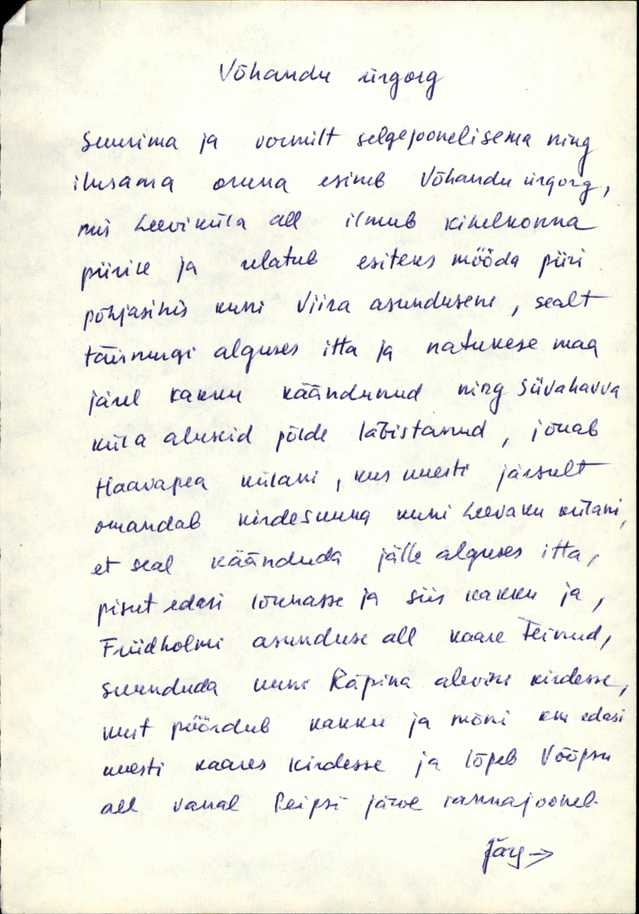 Võhandu ürgorg
Suurima ja vormilt selgejoonelisema ning
ilusama oruna esineb Võhandu ürgorg,
mis Leevi küla all ilmub kihelkonna
piirile ja ulatub esiteks mööda piiri
põhjasihis kuni Viira asunduseni, sealt
täisnurgi alguses itta ja natukese maa
järel kakku käändunud ning Süvahavva
küla aluseid põlde läbistanud, jõuab
Haavapea külani, kus uuesti järsult
omandab kirdesuuna kuni Leevaku külani,
et seal käänduda jälle alguses itta,
pisut edasi lõunasse ja siis kakku ja,
Friidholmi asunduse all kaare teinud,
suunduda kuni Räpina alevini kirdesse,
kust pöördub kakku ja mõni km edasi
uuesti kaares kirdesse ja lõpeb Võõpsu
all vanal Peipsi järve rannajoonel.
Järg →